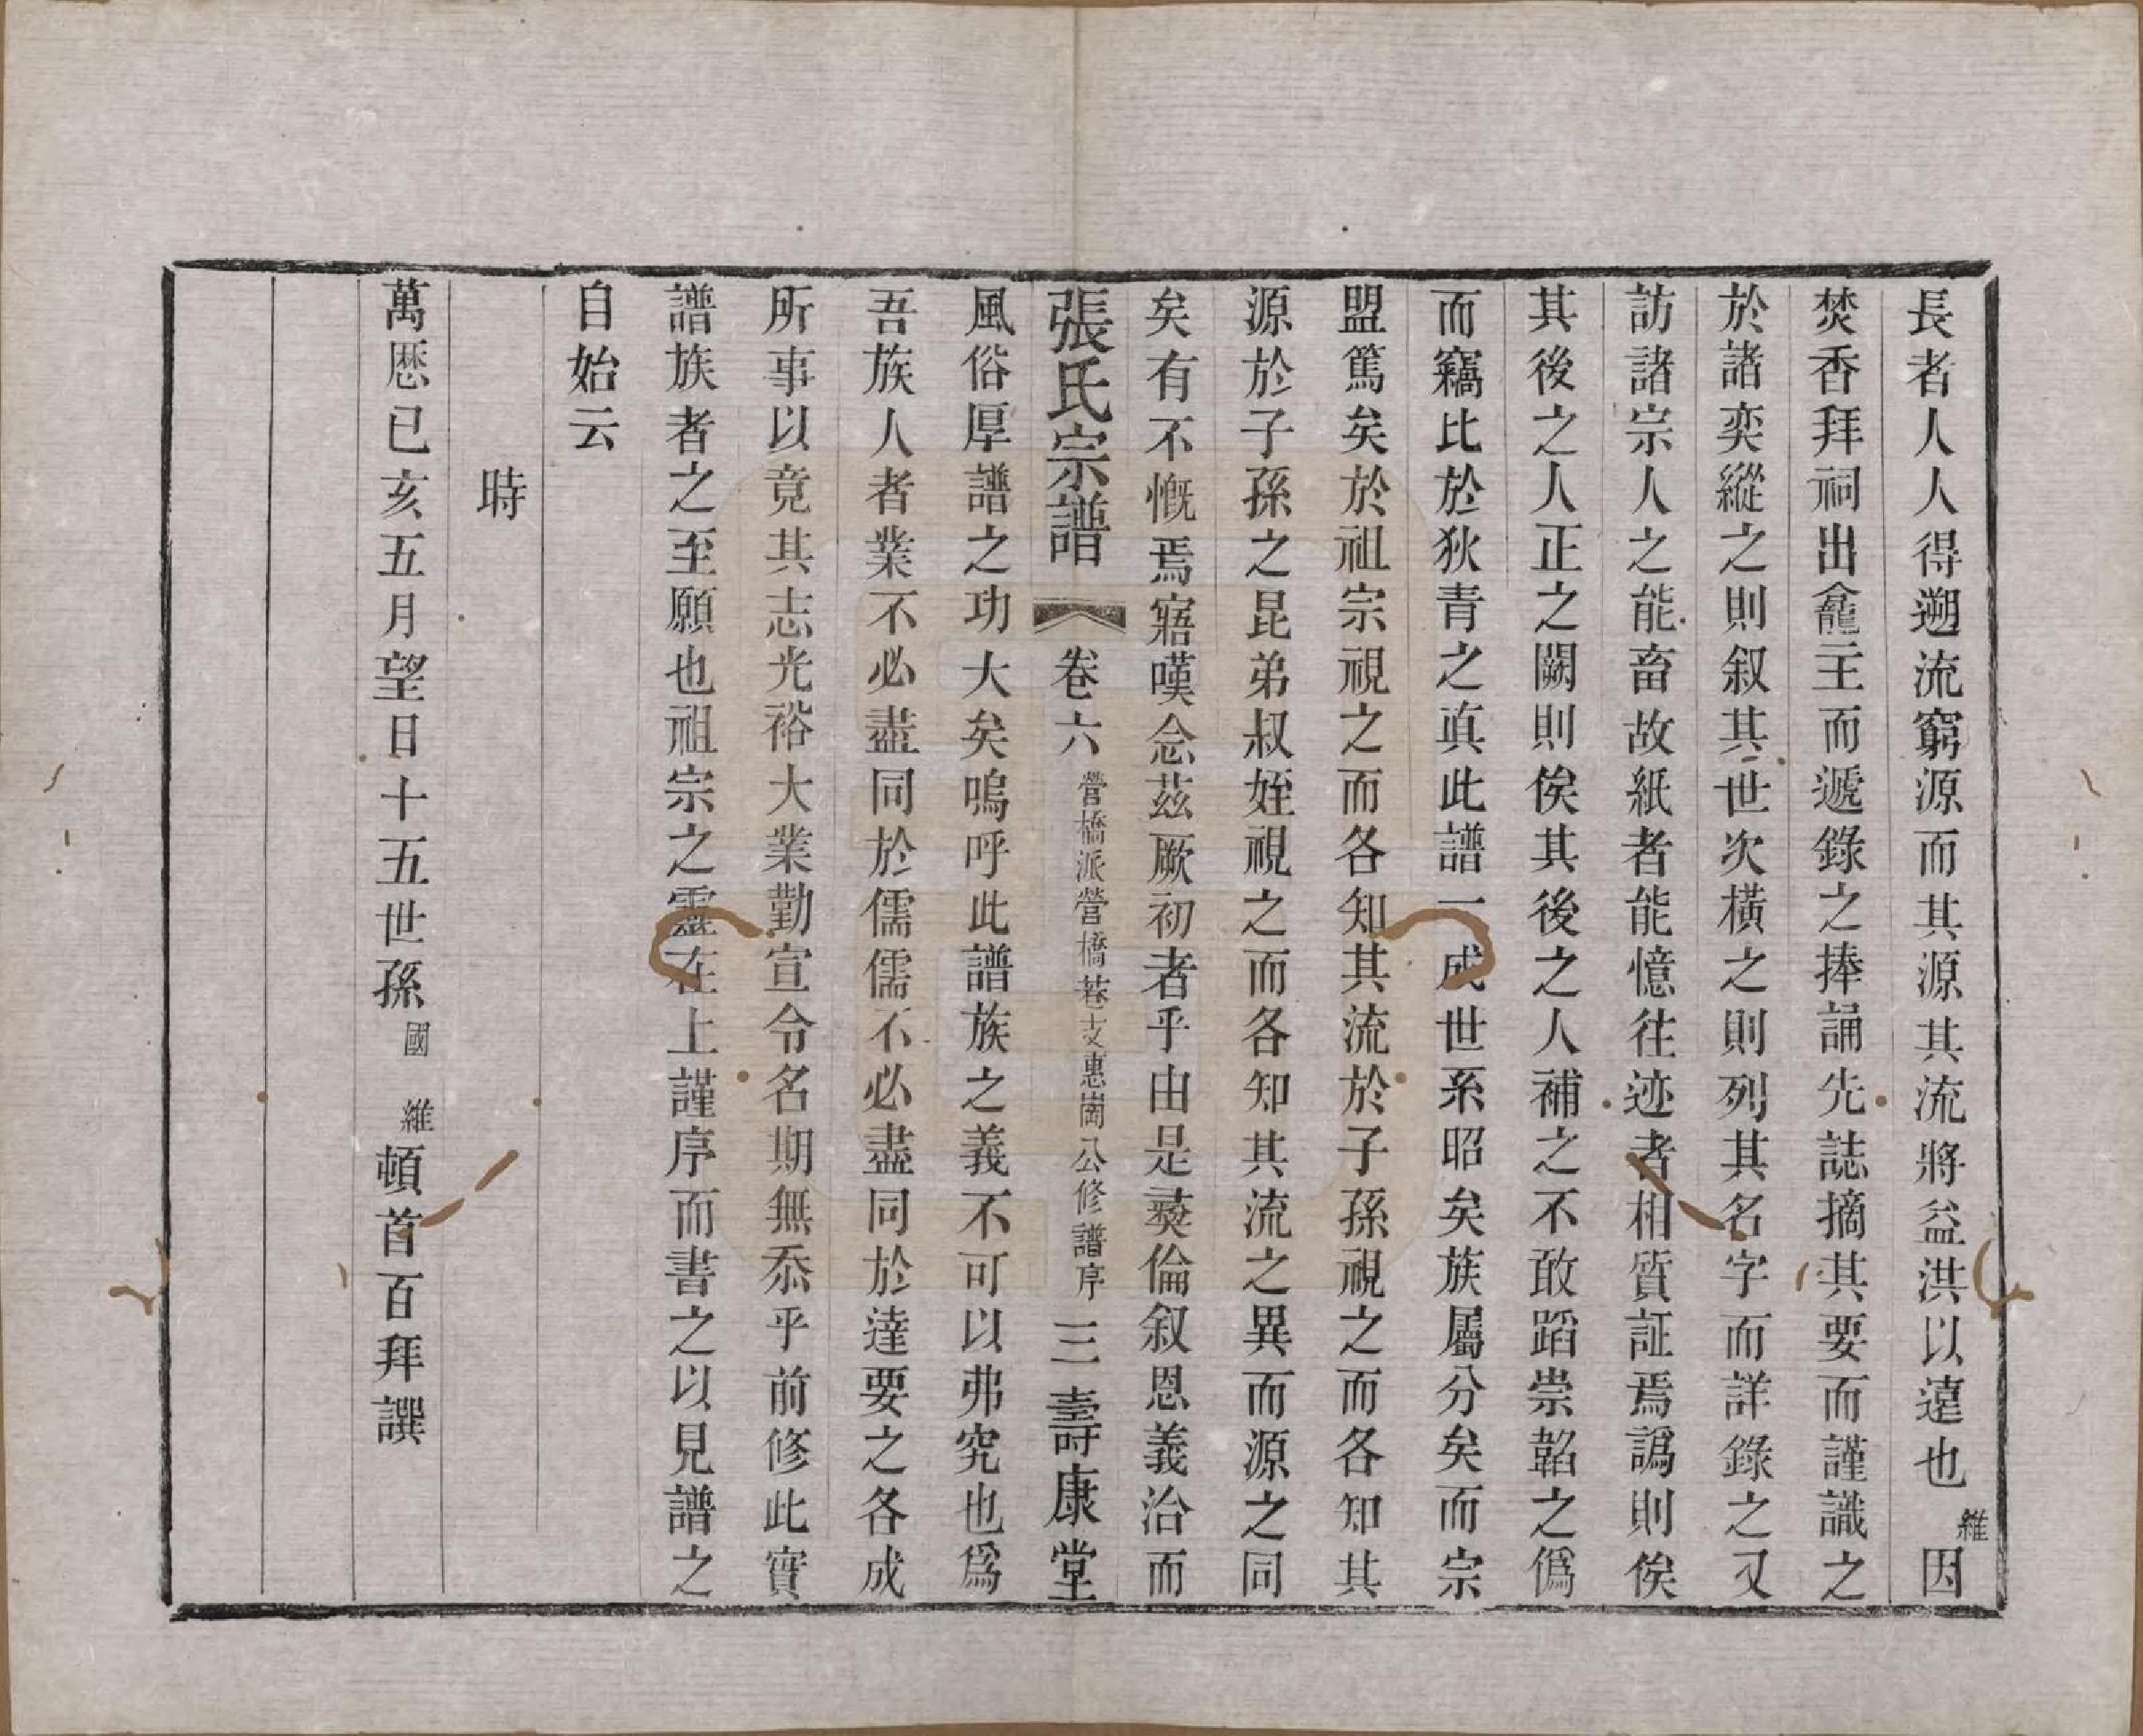 長者人人得遡流窮源而其源其流將益洪以遠也維因
焚香拜祠出龕主而遞錄之捧誦先誌摘其要而謹識之
於諸奕縱之則叙其世次橫之則列其名字而詳錄之又
訪諸宗人之能畜故紙者能憶往迹者相質証焉譌則俟
其後之人正之闕則俟其後之人補之不敢蹈崇韜之僞
而竊比於狄青之真此譜一成世系昭矣族屬分矣而宗
盟篤矣於祖宗視之而各知其流於子孫視之而各知其
源於子孫之昆弟叔姪視之而各知其流之異而源之同
矣有不慨焉寤嘆念茲厥初者乎由是彛倫叙恩義洽而
張氏宗譜 卷六 營橋派營橋巷支惠崗公修譜序 三 壽康堂
風俗厚譜之功大矣嗚呼此譜族之義不可以弗究也爲
吾族人者業不必盡同於儒儒不必盡同於達要之各成
所事以竟其志光裕大業勤宣令名期無忝乎前修此實
譜族者之至願也祖宗之靈在上謹序而書之以見譜之
自始云
時
萬厯已亥五月望日十五世孫國維頓首百拜譔